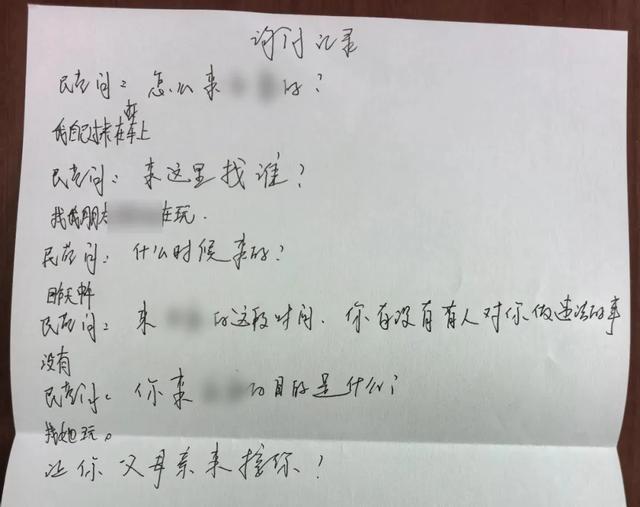 询问记录
民警问：怎么来 的？
我自己过来在 车上
民警问：来这里找谁？
找我朋友 在玩.
民警问：什么时候来的？
昨天
民警问：来 的这段时间.你有没有有人对你做违法的事
没有
民警问：你来 的目的是什么？
找她玩。
让你父母亲来接你？